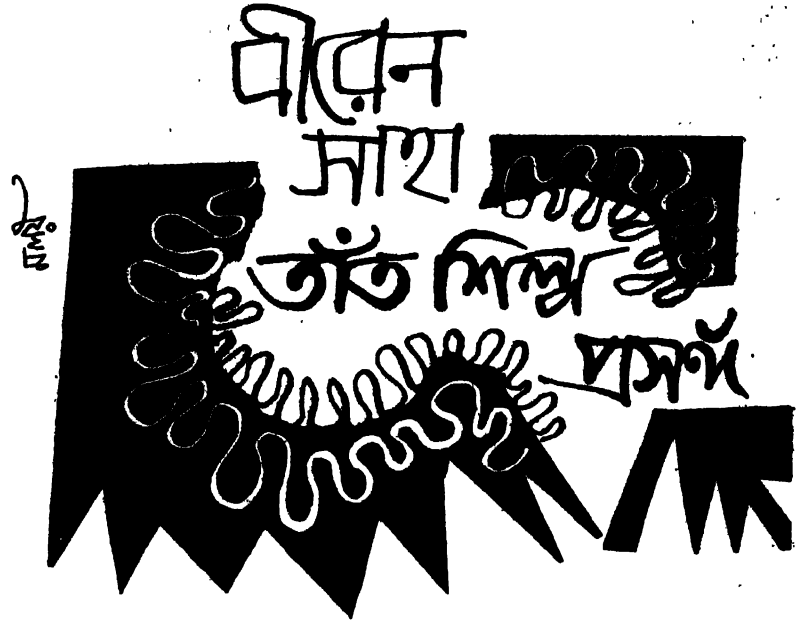 বীরেন
সাহা
তাঁত শিল্প
প্রসঙ্গ